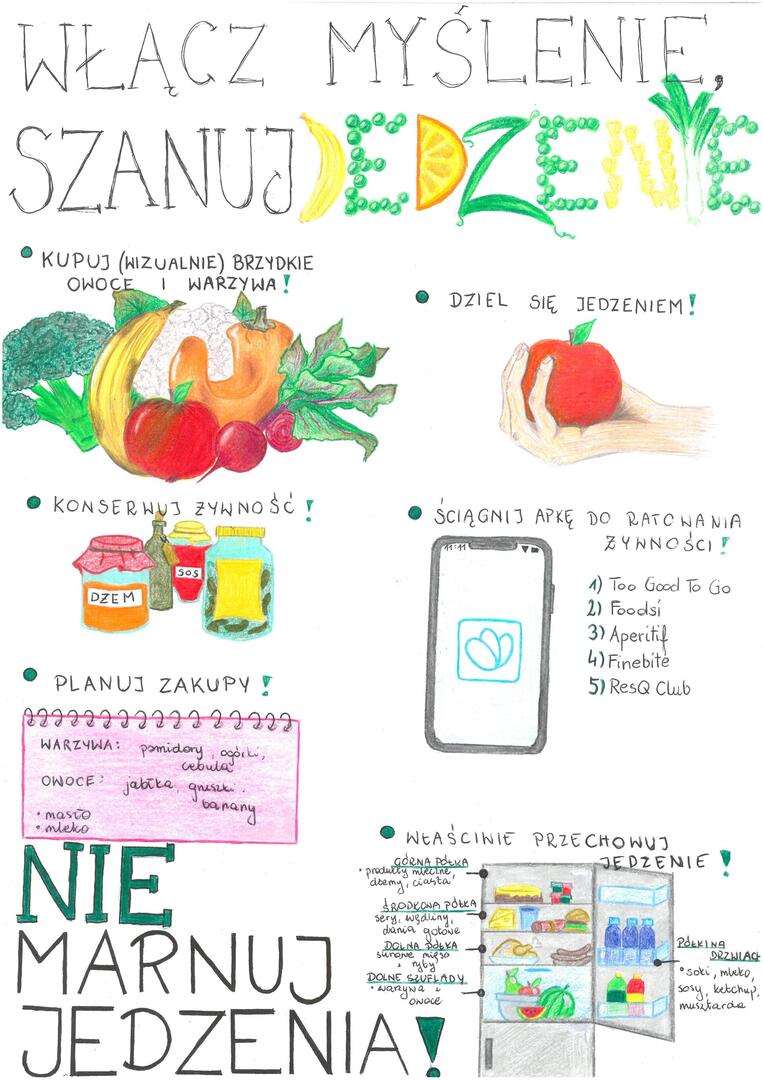 WŁĄCZ MYŚLENIE,
SZANUJ JEDZENIE
KUPUJ (WIZUALNIE) BRZYDKIE
OWOCE I WARZYWA!
DZIEL SIĘ JEDZENIEM!
KONSERWUJ ŻYWNOŚĆ!
DŻEM
SOS
ŚCIĄGNIJ APKĘ DO RATOWANIA
ŻYWNOŚCI!
11:11
1) Too Good To Go
2) Foodsi
3) Aperitif
4) Finebite
5) ResQ Club
PLANUJ ZAKUPY!
WARZYWA: pomidory, ogórki,
cebula
OWOCE: jabłka, gruszki,
banany
• masło
• mleko
WŁAŚCIWIE PRZECHOWUJ
JEDZENIE!
GÓRNA PÓŁKA
• produkty mleczne,
dżemy, ciasta
ŚRODKOWA PÓŁKA
sery, wędliny,
dania gotowe
DOLNA PÓŁKA
surowe mięso
i ryby
DOLNE SZUFLADY
• warzywa i
owoce
PÓŁKI NA
DRZWIACH
• soki, mleko,
sosy, ketchup,
musztarda
NIE
MARNUJ
JEDZENIA!